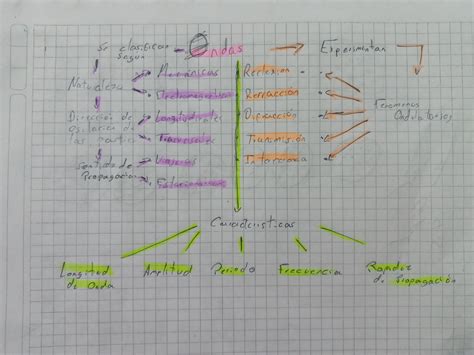 Se clasifican
Segun
Ondas
Experimentan
Naturaleza
Mecánicas
Electromagneticas
Dirección de
oscilación de
las
Longitudinales
Transversales
Sentido de
Propagación
Viajeras
Estacionarias
Reflexión
Refracción
Difracción
Transmisión
Interferencia
Fenomenos
Ondulatorios
Caracteristicas
Longitud
de Onda
Amplitud
Periodo
Frecuencia
Rapidez
de Propagación